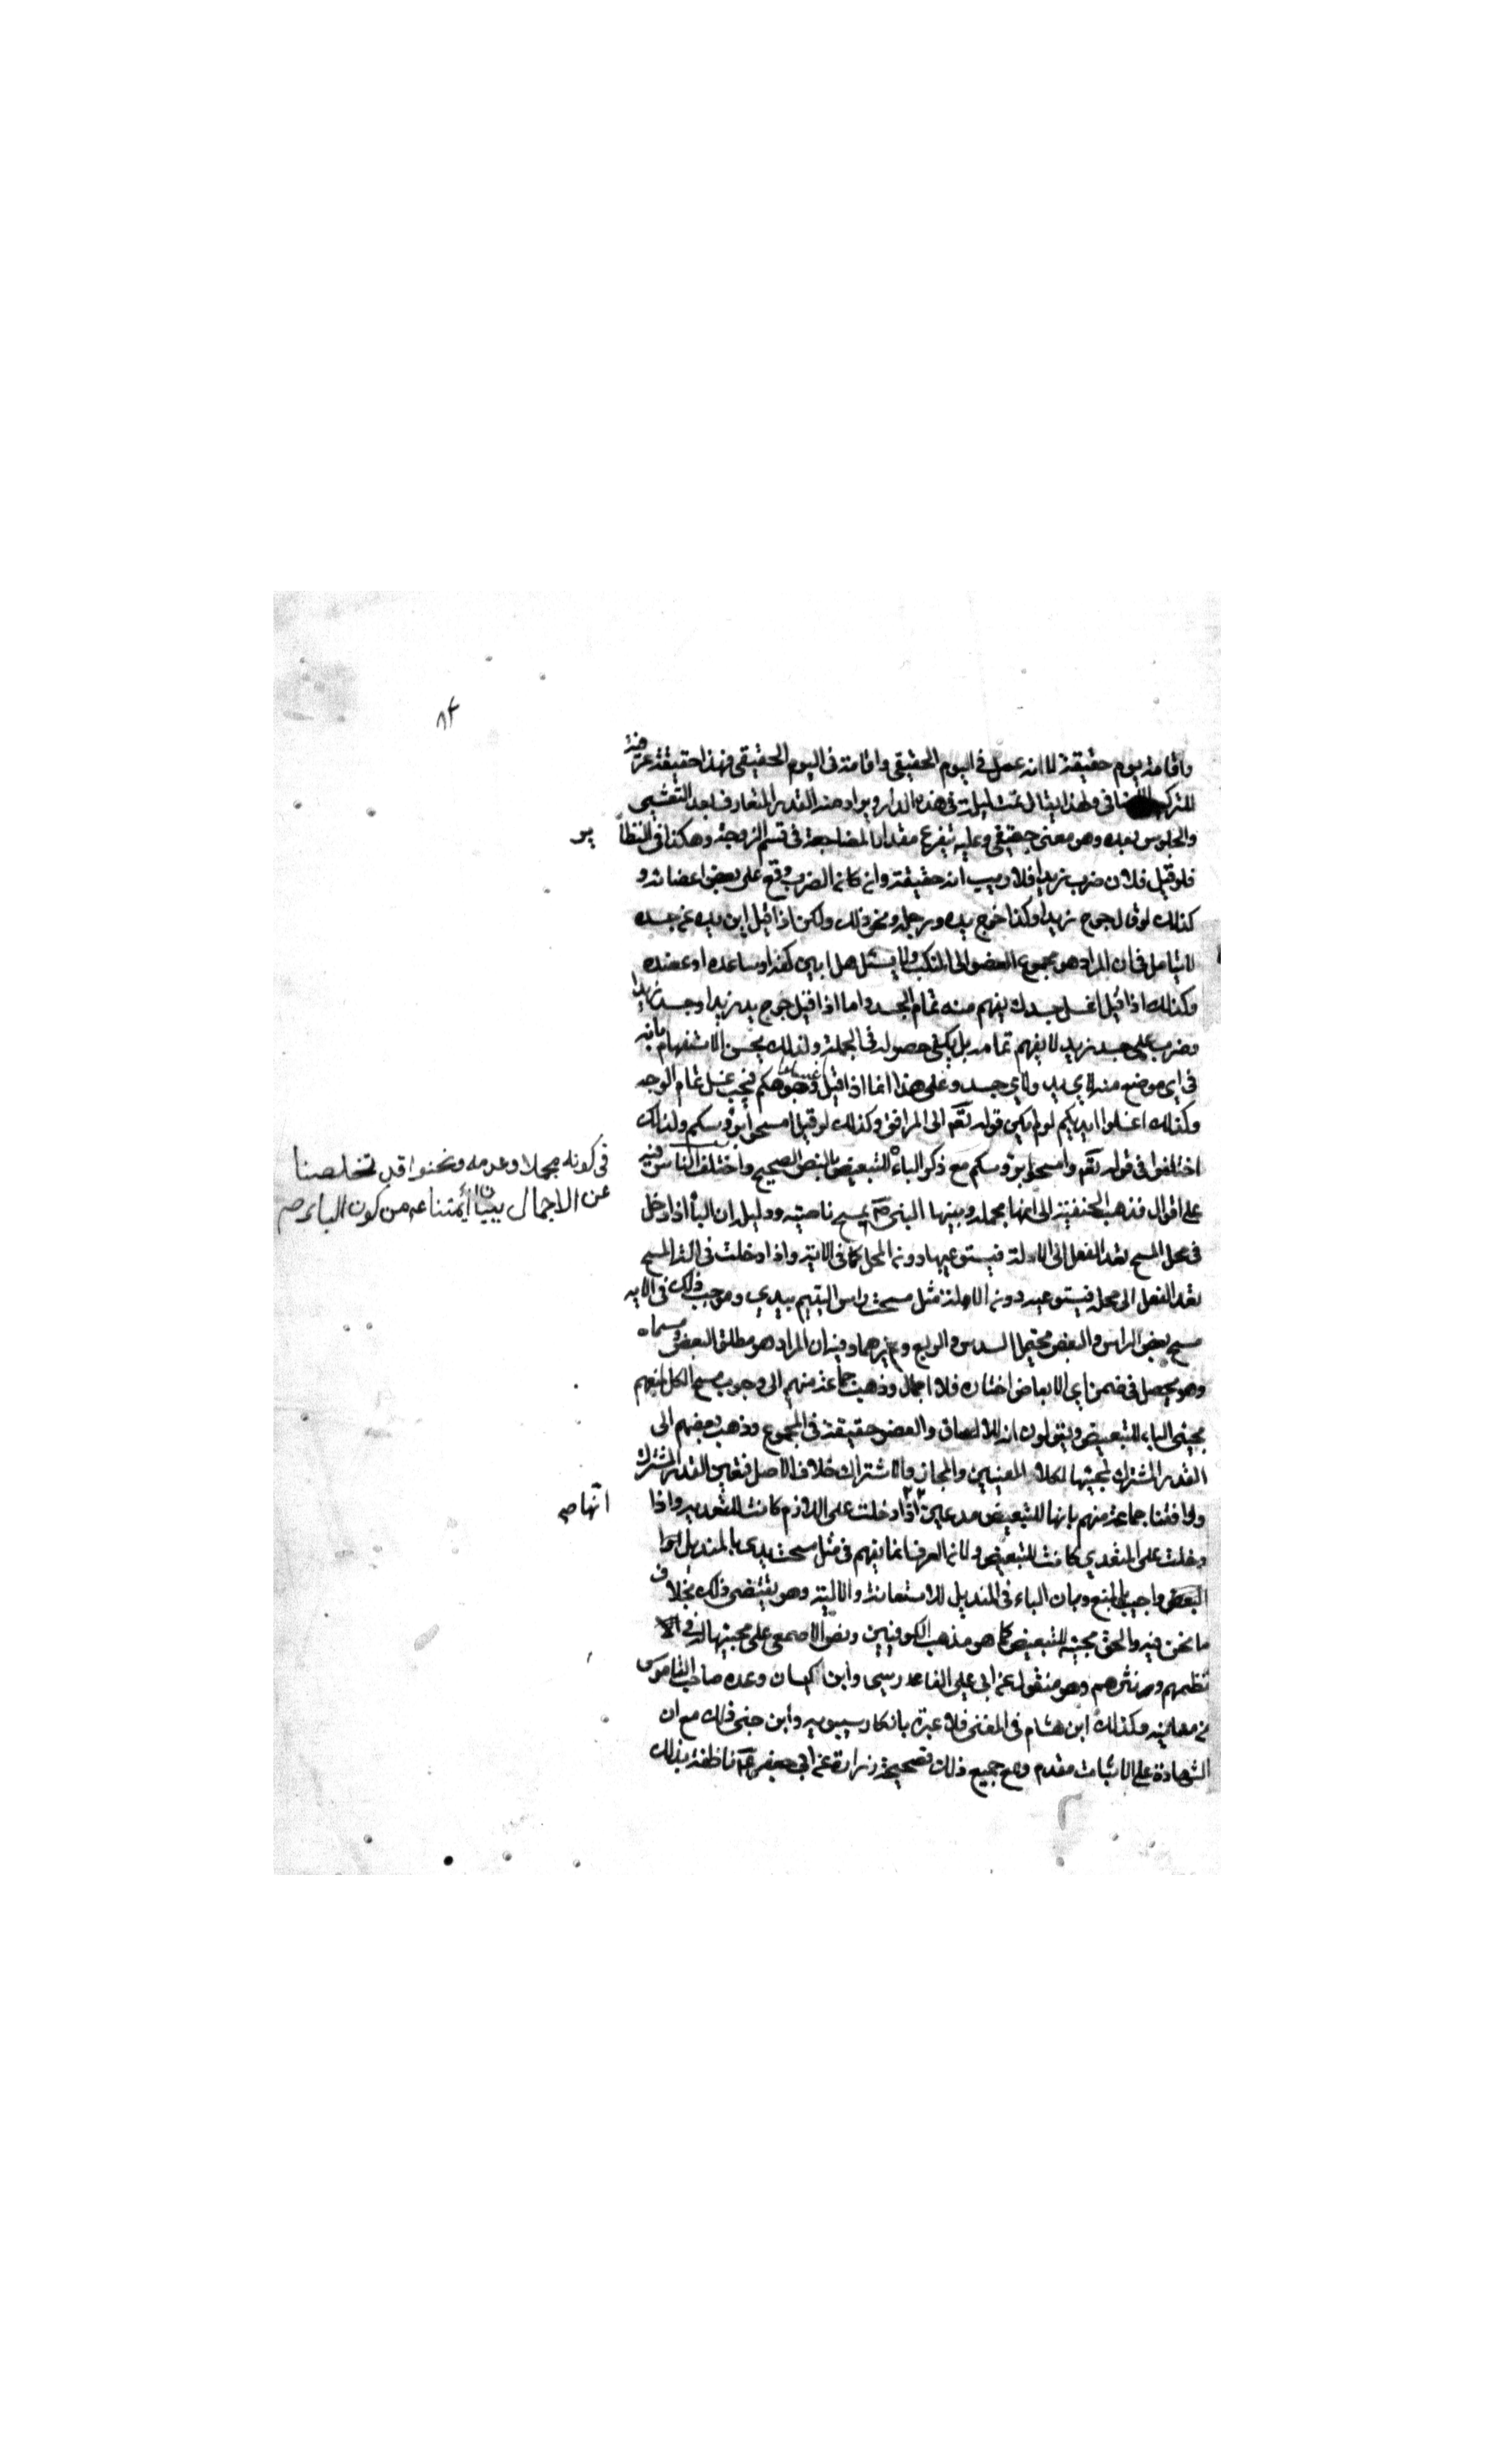 ٨٢
واقامة يوم حقيقة لا انه عمل في اليوم الحقيقي واقامة في اليوم الحقيقي فهذا حقيقة عرفية
للتركيب الاضافي ولهذا يقال نمت ليلة في هذه الدار ويراد منه القدر المتعارف بعد التعشي
والجلوس بعده وهو معنى حقيقي وعليه يتفرع مقدار المضاجعة في قسم الزوجة وهكذا في النظاير
فلو قيل فلان ضرب زيدا فلا ريب انه حقيقة وان كان الضرب وقع على بعض اعضائه و
كذلك لو قال جرح زيدا وكذا جرح يده ورجله ونحو ذلك ولكن اذا قيل ابن يده عن جسده
لا يتامل في ان المراد هو مجموع العضو الى المنكب ولا يسئل هل ابين كفه او ساعده او عضده
وكذلك اذا قيل اغسل جسدك يفهم منه تمام الجسد واما اذا قيل جرح يد زيد او جسد زيد او
ضرب على جسد زيد لا يفهم تمامه بل يكفي حصوله في الجملة ولذلك يحسن الاستفهام بانه
في اي موضع منه لاي يد ولاي جسد وعلى هذا انما اذا قيل اغسلوا وجوهكم فيجب غسل تمام الوجه
وكذلك اغسلوا ايديكم لو لم يكن قوله تعم الى المرافق وكذلك لو قيل امسحوا برؤسكم ولذلك
اختلفوا في قوله تعم وامسحوا برؤسكم مع ذكر الباء للتبعيض بالنص الصحيح واختلف الناس فيه
في كونه مجملا وعدمه ونحنوا قد تخلصنا
عن الاجمال ببيان أئمتنا عم من كون الباء صح
على اقوال فذهب الحنفية الى انها مجملة وبينها النبي ص بمسح ناصيته ودليله ان الباء اذا دخل
في محل المسح تعد الفعل الى الالة فيستوعبها دون المحل كما في الاية واذا دخلت في الة المسح
تعد الفعل الى محله فيستوعبه دون الالة مثل مسحت راس اليتيم بيدي وموجب ذلك في الاية
مسح بعض الراس والبعض محتمل السدس والربع وغيرهما وفيه ان المراد هو مطلق البعض ومسماه
وهو يحصل في ضمن اي الابعاض اختاره فلا اجمال وذهب جماعة منهم الى وجوب مسح الكل لمنعهم
مجيئ الباء للتبعيض ويقولون انه للالصاق والعضو حقيقة في المجموع وذهب بعضهم الى
القدر المشترك لمجيئها لكلا المعنيين والمجاز والاشتراك خلاف الاصل فتعين القدر المشترك
ووافقنا جماعة منهم بانها للتبعيض مدعين انها اذا دخلت على اللازم كانت للتعدية واذا
انها صح
دخلت على المتعدي كانت للتبعيض ولان العرف انما يفهم في مثل مسحت يدي بالمنديل
البعض واجيب بالمنع وبان الباء في المنديل للاستعانة والالية وهو يقتضي ذلك بخلاف
ما نحن فيه والحق مجيئه للتبعيض كما هو مذهب الكوفيين ونص الاصمعي على مجيئها له في
نظمهم ونثرهم وهو منقول عن ابي علي الفارسي وابن كيسان وعده صاحب القاموس
من معانيه وكذلك ابن هشام في المغني فلا عبرة بانكار سيبويه وابن جني ذلك مع ان
الشهادة على الاثبات مقدم ومع جميع ذلك فصحيحة زرارة عن ابي جعفر عم ناطقة بذلك